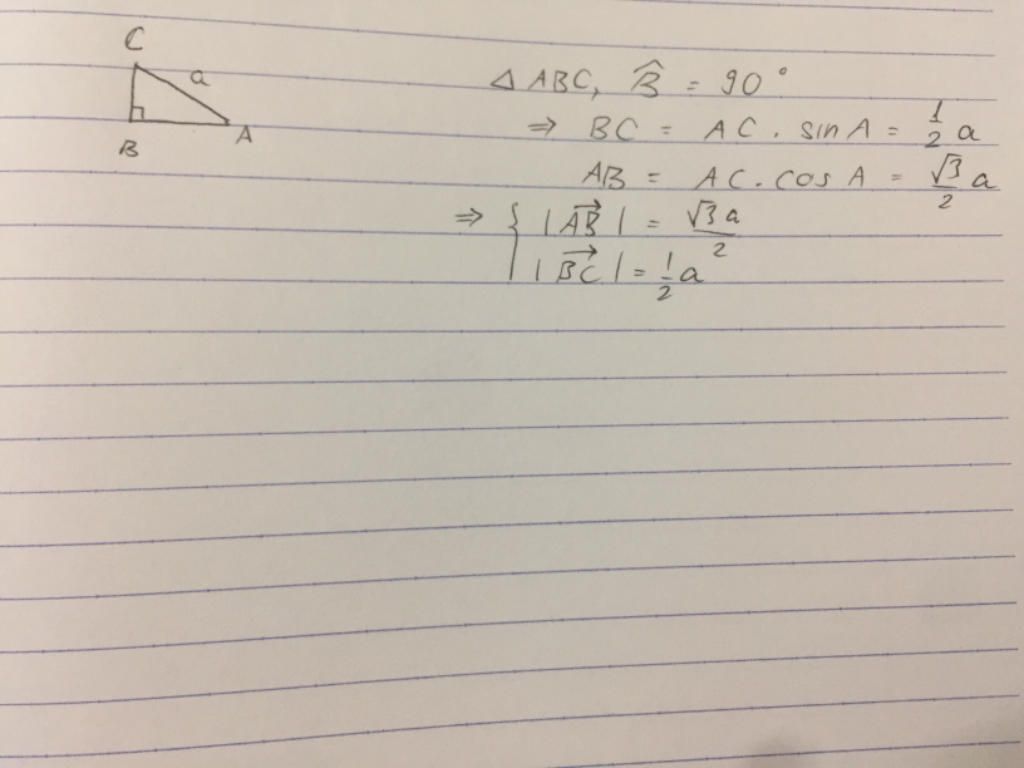 C
a
B
A
△ ABC, B̂ = 90°
⇒ BC = AC . sin A = 1/2 a
AB = AC . cos A = √3/2 a
⇒ { |AB→| = √3 a/2
|BC→| = 1/2 a